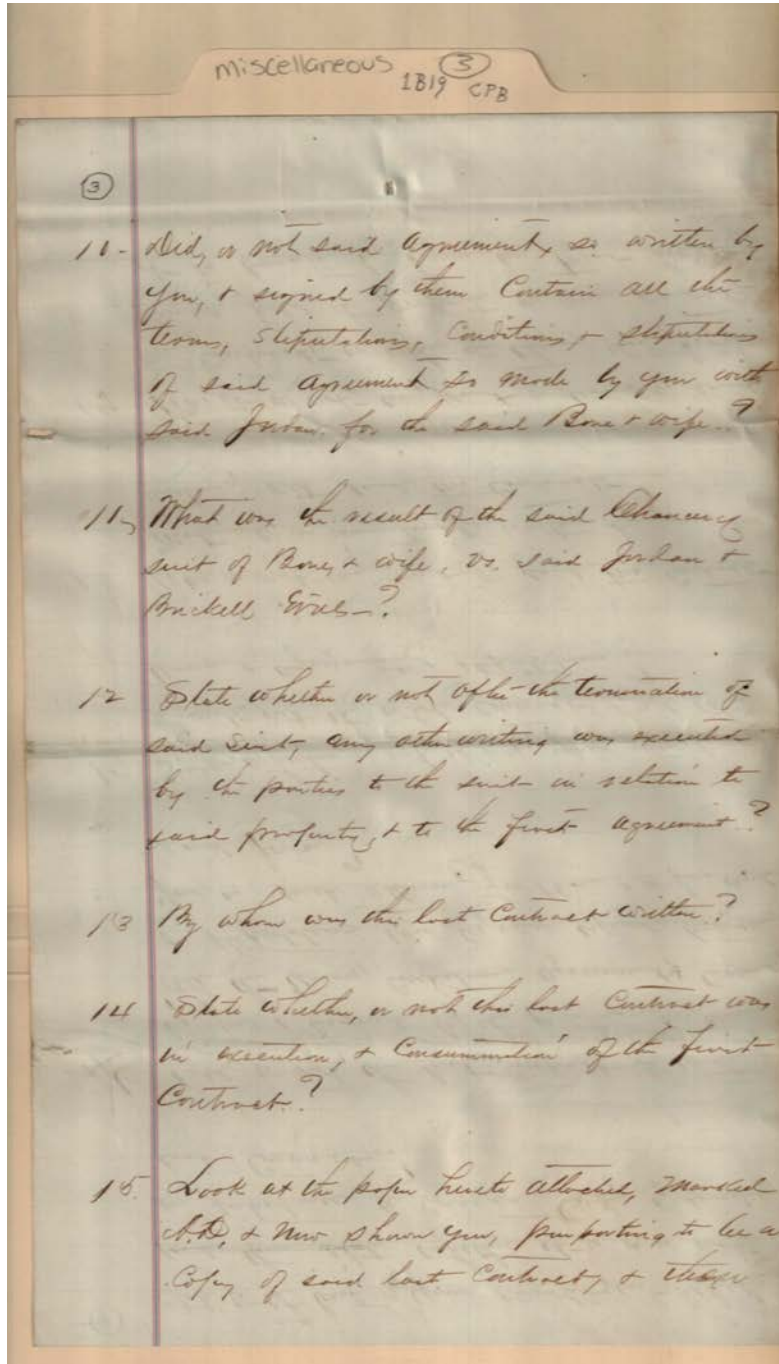 miscellaneous 3
1B19 CPB
3
10- Did, or not said agreement, so written by
you, & signed by them Contain all the
terms, Stipulations, Conditions, & stipulations
of said agreement so made by you with
said Jordan for the said Bone & wife-?
11, What was the result of the said Chancery
suit of Bone, & wife, vs. said Jordan &
Brickell
12 State whether or not after the termination of
said Suit, any other writing was executed
by the parties to the suit in relation to
said property, & to the first agreement?
13 By whom was this last Contract written?
14 State whether, or not this last Contract was
in execution, & Consummation of the first
Contract?
15. Look at the paper hereto attached, marked
& now shown you, purporting to be a
Copy of said last Contract, &